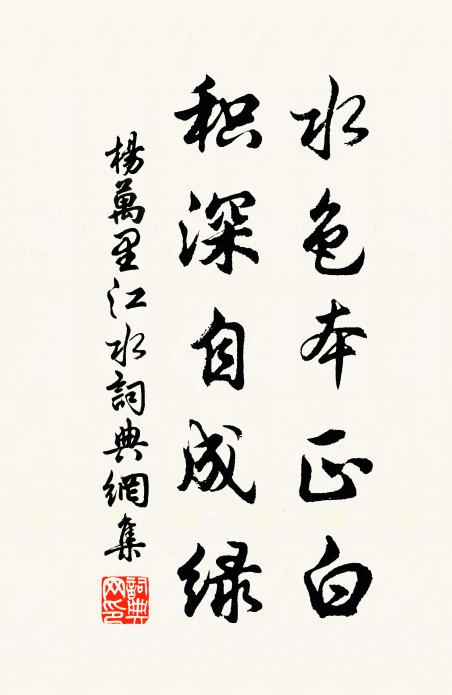 水色本正白
积深自成绿
楊萬里江水詞典網集
詞典網印